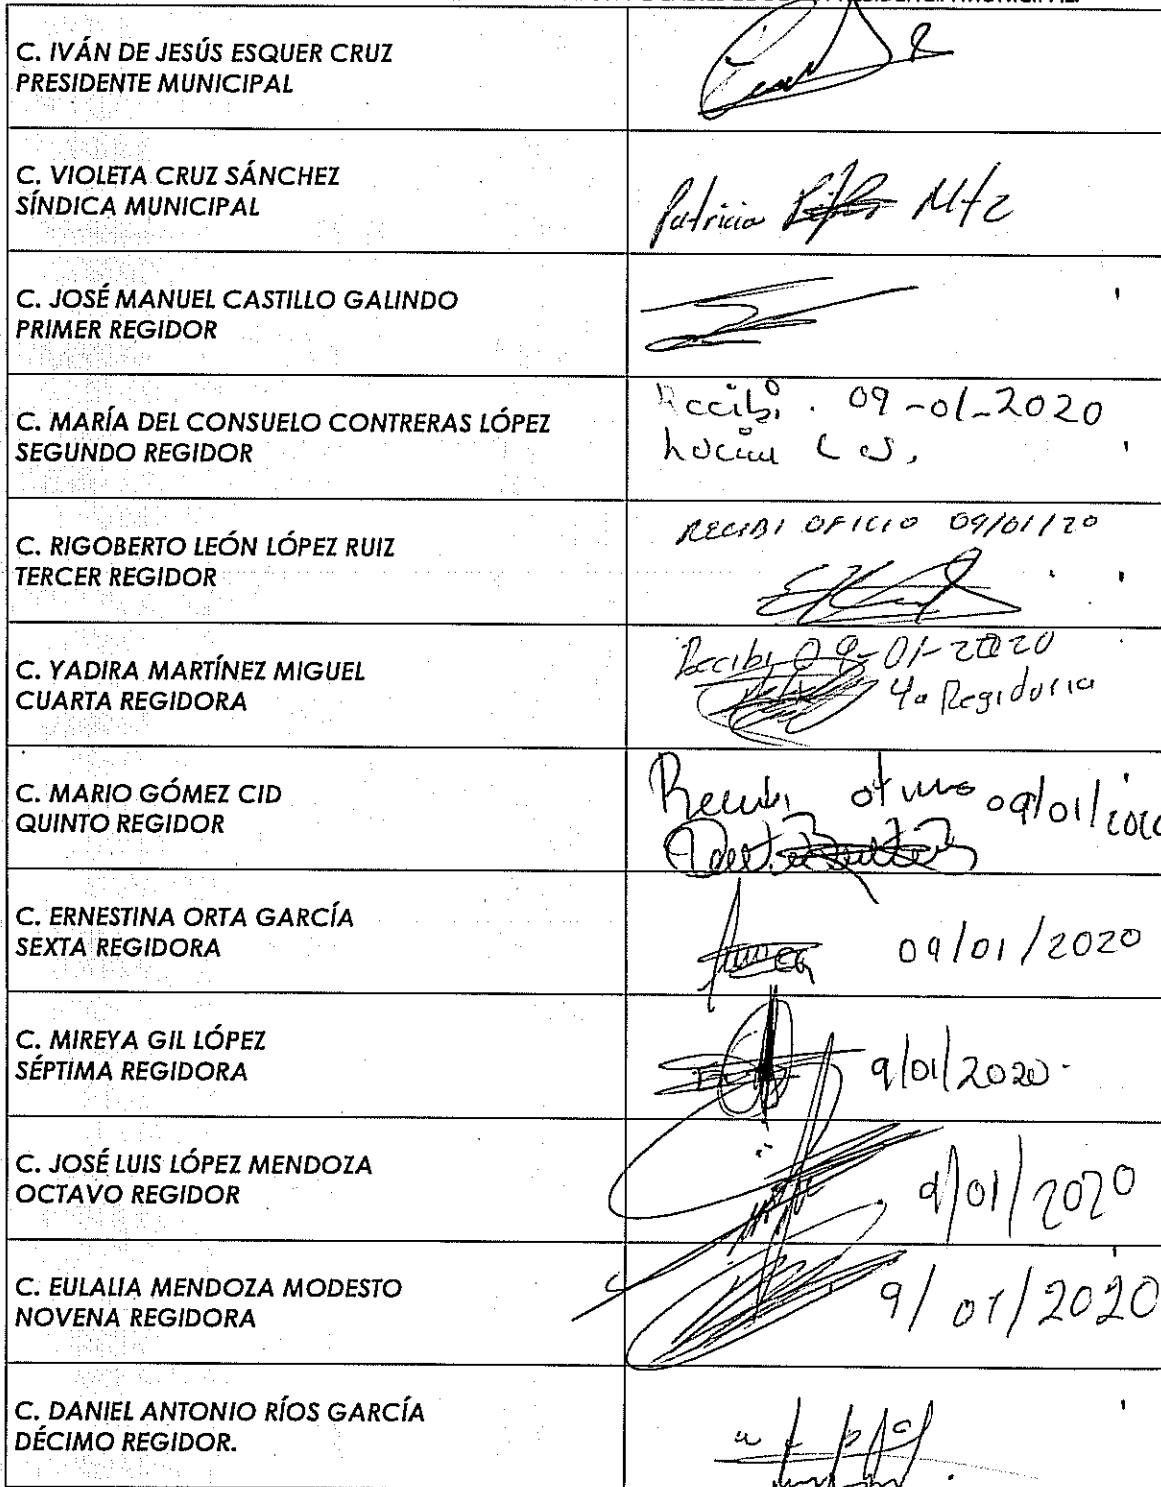 C. IVÁN DE JESÚS ESQUER CRUZ
PRESIDENTE MUNICIPAL
C. VIOLETA CRUZ SÁNCHEZ
SÍNDICA MUNICIPAL
Patricia Mtz
C. JOSÉ MANUEL CASTILLO GALINDO
PRIMER REGIDOR
C. MARÍA DEL CONSUELO CONTRERAS LÓPEZ
SEGUNDO REGIDOR
Recibi. 09-01-2020
C. RIGOBERTO LEÓN LÓPEZ RUIZ
TERCER REGIDOR
RECIBI OFICIO 09/01/20
C. YADIRA MARTÍNEZ MIGUEL
CUARTA REGIDORA
Recibi 09-01-2020
4a Regiduria
C. MARIO GÓMEZ CID
QUINTO REGIDOR
Recibi 09/01/
C. ERNESTINA ORTA GARCÍA
SEXTA REGIDORA
09/01/2020
C. MIREYA GIL LÓPEZ
SÉPTIMA REGIDORA
9/01/2020.
C. JOSÉ LUIS LÓPEZ MENDOZA
OCTAVO REGIDOR
9/01/2020
C. EULALIA MENDOZA MODESTO
NOVENA REGIDORA
9/01/2020
C. DANIEL ANTONIO RÍOS GARCÍA
DÉCIMO REGIDOR.